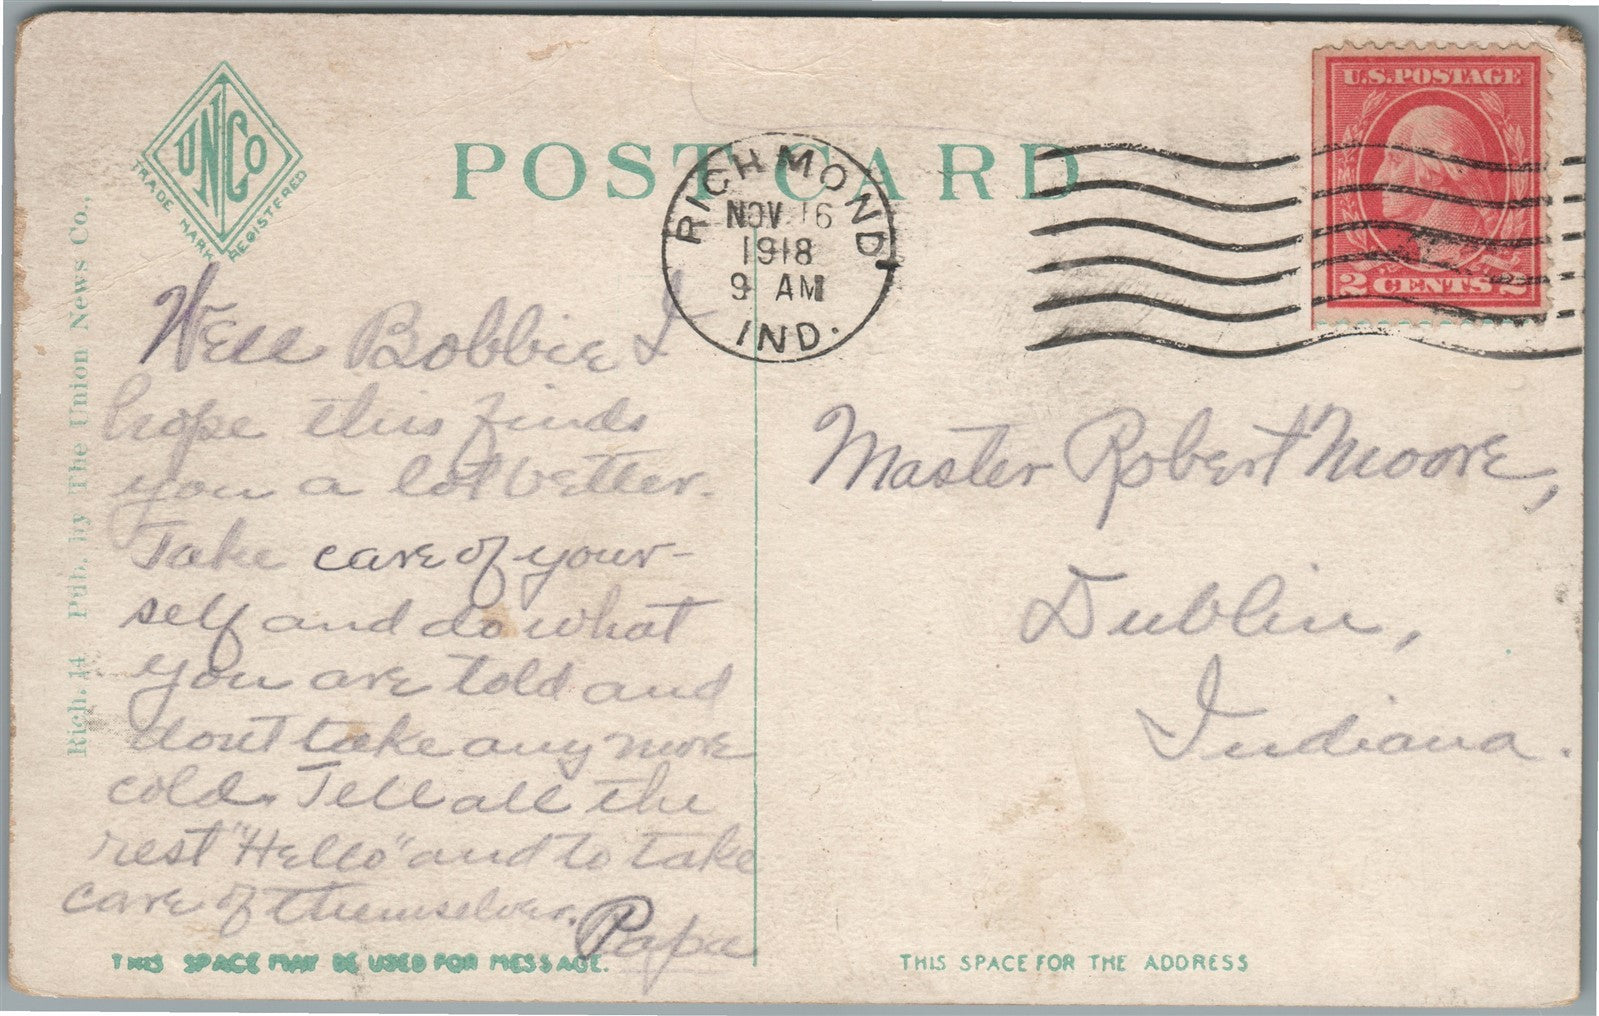 UNCo
TRADE MARK REGISTERED
POST CARD
RICHMOND
NOV 16
1918
9 AM
IND.
U.S. POSTAGE
2 CENTS 2
Rich. 14. Pub. by The Union News Co.,
Well Bobbie I
hope this finds
you a lot better.
Take care of your-
self and do what
you are told and
don't take any more
cold. Tell all the
rest "Hello" and to take
care of themselves.
Papa
Master Robert Moore,
Dublin,
Indiana.
THIS SPACE MAY BE USED FOR MESSAGE.
THIS SPACE FOR THE ADDRESS